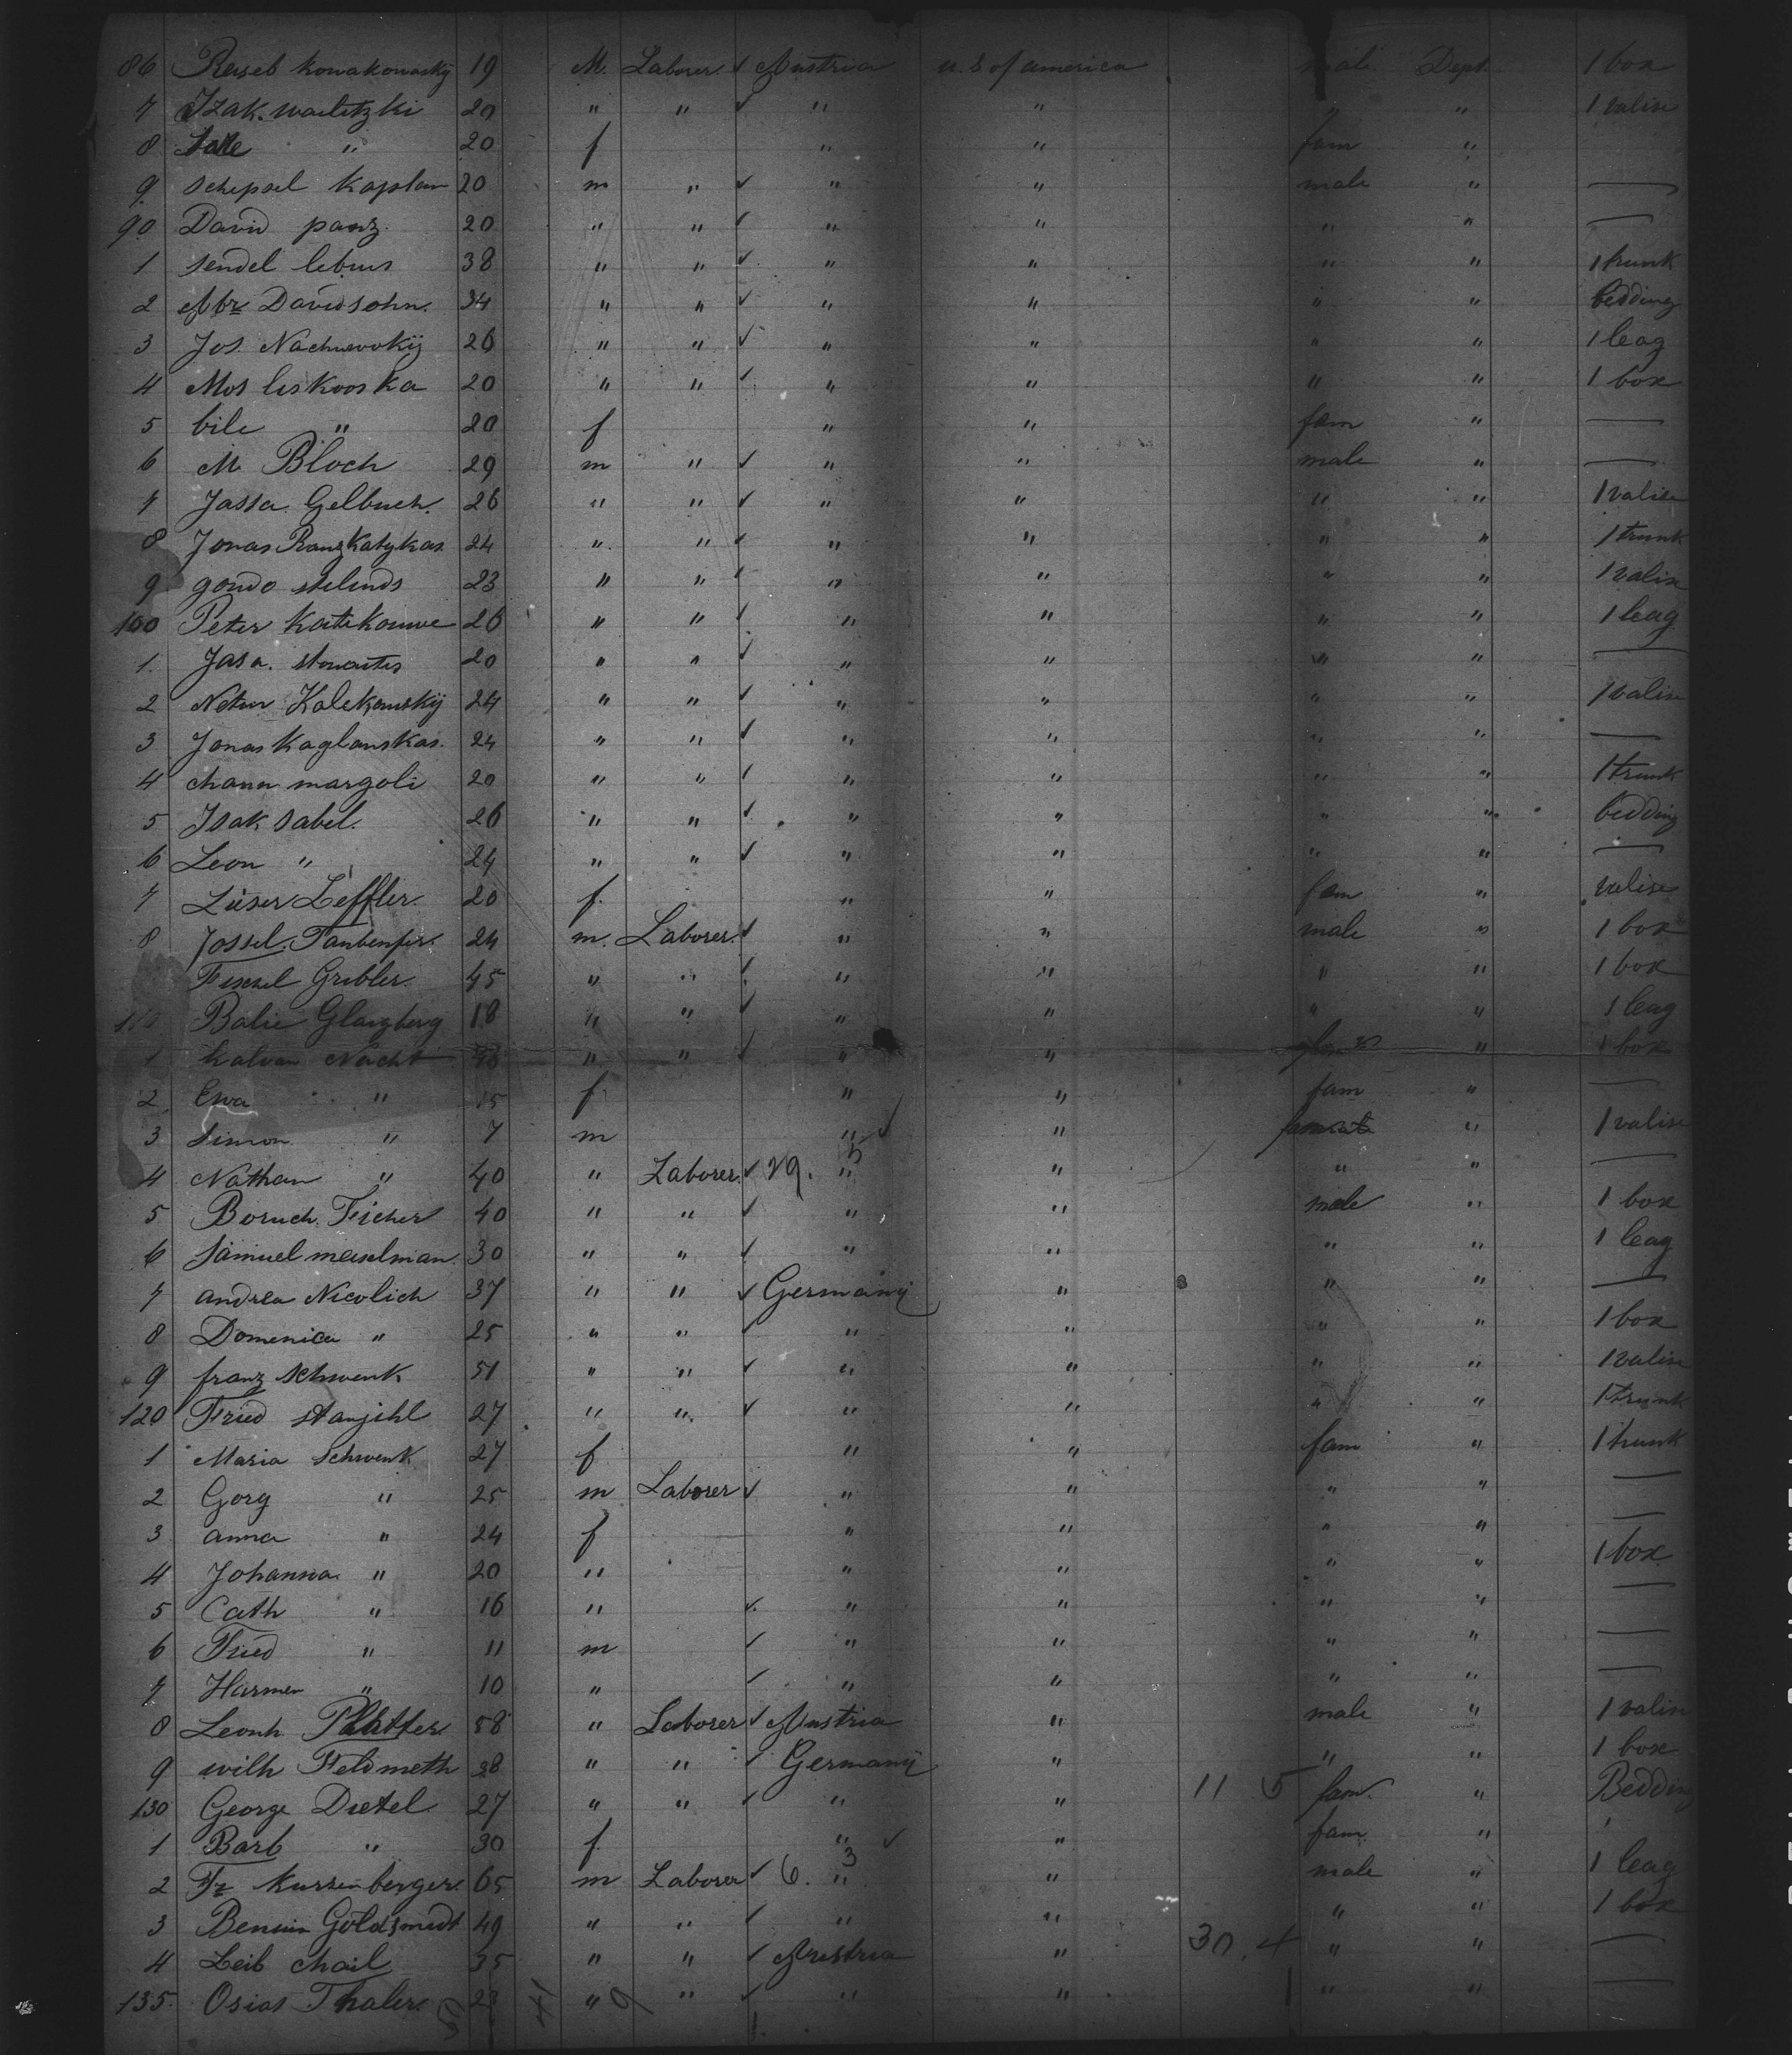 86 Reiseb Kowakowsky 19 M. Laborer ✓ Austria U.S of America male Dept. 1 box
7 Izak. Wailitzki 20 " " ✓ " " " " 1 valise
8 " 20 f " " fam "
9 Schepsel Kaplan 20 m " ✓ " " male " —
90 David panz 20 " " ✓ " " " " —
1 Sendel lebuis 38 " " ✓ " " " " 1 trunk
2 Abr Davidsohn. 34 " " ✓ " " " " bedding
3 Jos. 26 " " ✓ " " " " 1 leag
4 Mos leskooska 20 " " ✓ " " " " 1 box
5 bile " 20 f " " fam " —
6 M Bloch 29 m " ✓ " " male " —
7 Jassa Gelbuch. 26 " " ✓ " " " " 1 valise
8 Jonas 24 " " ✓ " " " " 1 trunk
9 gondo stelinds 23 " " ✓ " " " " 1 valise
100 Peter Katikouwe 26 " " ✓ " " " " 1 leag
1. Jasa. 20 " " ✓ " " " " —
2 Kalekowskij 24 " " ✓ " " " " 1 valise
3 Jonas Kaglanskas. 24 " " ✓ " " " " —
4 Chana margoli 20 " " ✓ " " " " 1 trunk
5 Isak Sabel. 26 " " ✓ " " " " bedding
6 Leon " 24 " " ✓ " " " " —
7 Lieser Leffler 20 f. " " fam " valise
8 Jossel. 24 m. Laborer. ✓ " " male " 1 box
Feschel Gribler. 45 " " ✓ " " " " 1 box
110 Balie Glazberg 18 " " ✓ " " " " 1 leag
1 Kalvan Nacht " " ✓ " " " 1 box
2 Ewa " 15 f " " fam " —
3 Simon " 7 m " ✓ " " 1 valise
4 Nathan " 40 " Laborer. ✓ 29. 5 " " " " —
5 Boruch. Ficher 40 " " ✓ " " male " 1 box
6 Samuel meiselman 30 " " ✓ " " " " 1 leag
7 Andrea Nicolich 37 " " ✓ Germany " " " —
8 Domenica " 25 " " ✓ " " " " 1 box
9 franz Schwenk 51 " " ✓ " " " " 1 valise
120 Fried stanjihl 27 " " ✓ " " " " 1 trunk
1 Maria Schwenk 27 f " " fam " 1 trunk
2 Gorg " 25 m Laborer ✓ " " " " —
3 anna " 24 f " " " " —
4 Johanna " 20 " " " " " 1 box
5 Cath " 16 " ✓ " " " " —
6 Fried " 11 m ✓ " " " " —
7 Harmen " 10 " ✓ " " " " —
8 Leonh Platter 58 " Laborer ✓ Austria " male " 1 valise
9 wilh Feldmeth 38 " " ✓ Germany " " " 1 box
130 George Dietel 27 " " ✓ " " 11 5 fam. " Bedding
1 Barb " 30 f " ✓ " fam "
2 Fr Kurzenberger 65 m Laborer ✓ 6. 3 " " male " 1 leag
3 Goldsmidt 49 " " ✓ " " " " 1 box
4 Leib Chail 35 " " ✓ Austria " 30.4 " " —
135. Osias Thaler. 23 " 9 " ✓ " " 1 " " —